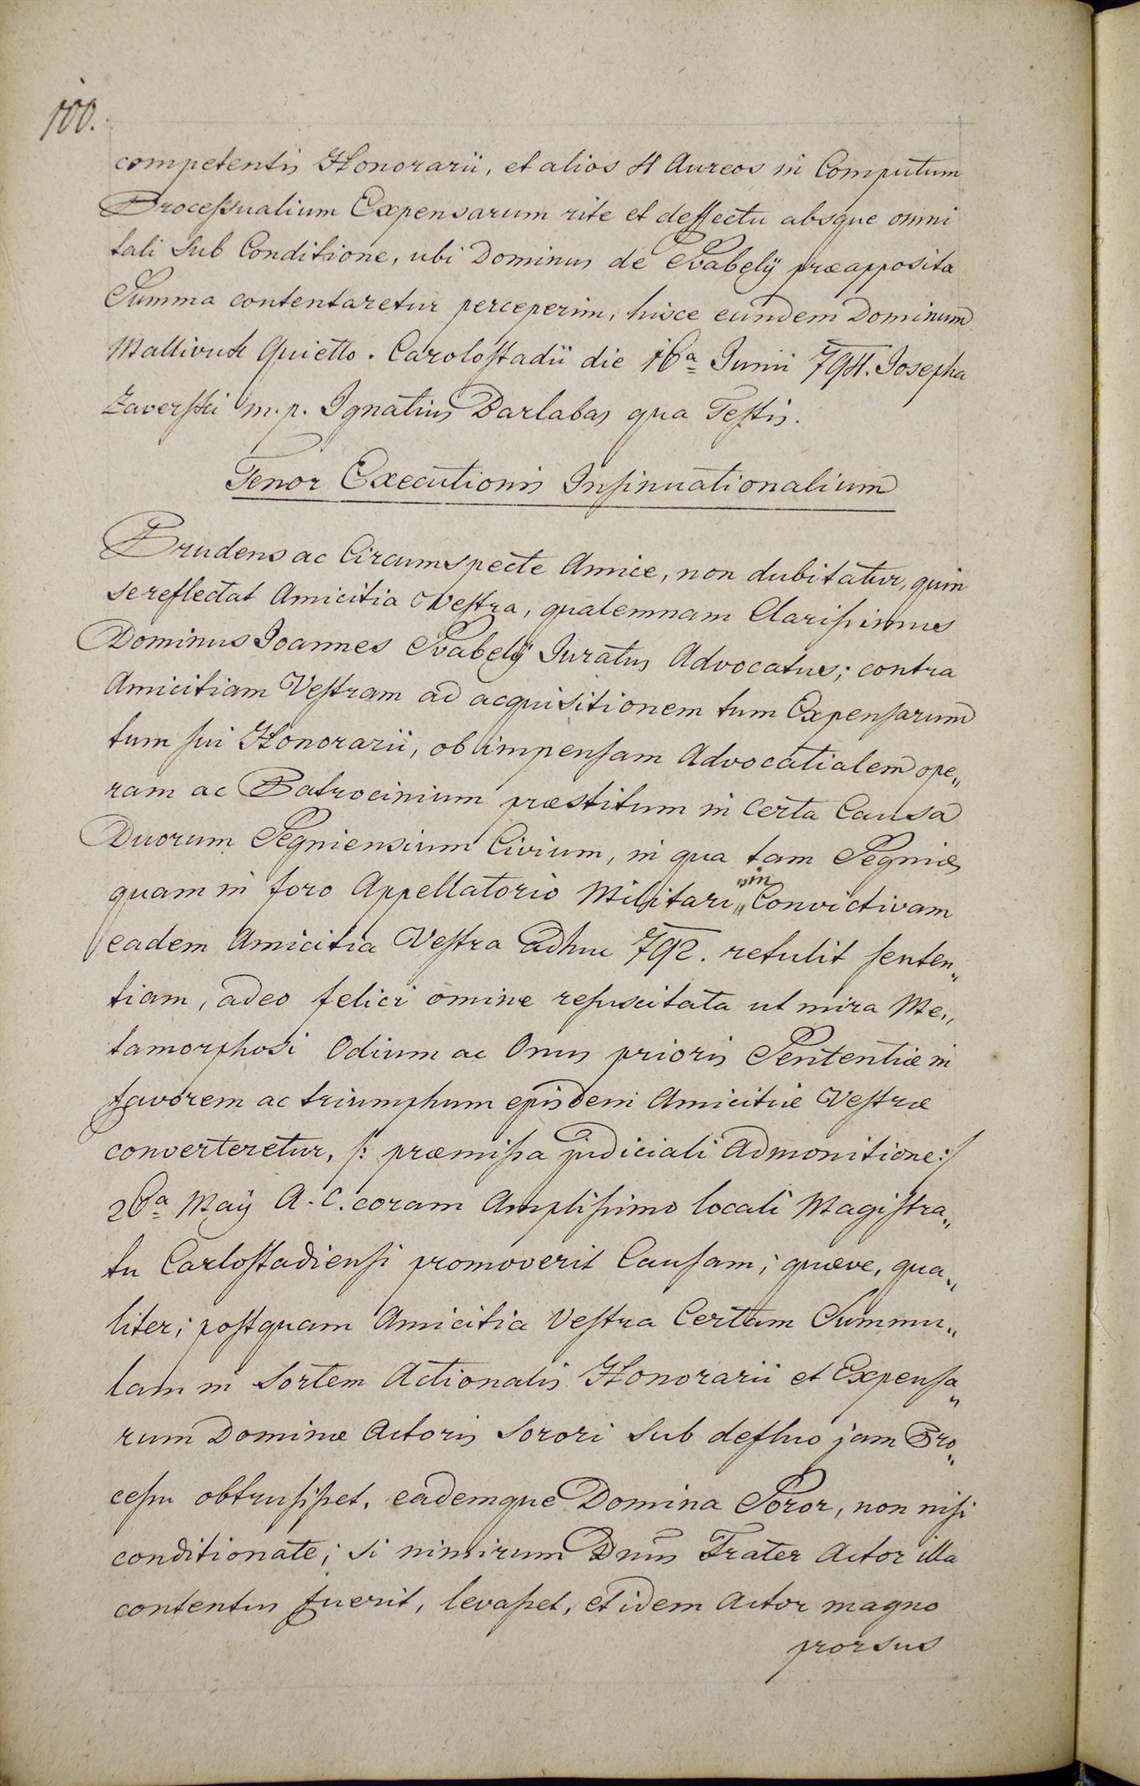 100.
competentis Honorarii, et alios 4 Aureos in Computum
Processualium Expensarum rite et deffectu absque omni
tali sub Conditione, ubi Dominus de Szabely præapposita
Summa contentaretur perceperim, hisce eundem Dominum
Mallivuk Quietto. Carolostadii die 16a Junii 794. Josepha
Zaverski m.p. Ignatius Barlabas qua Testis.
Tenor Executionis Insinuationalium
Prudens ac Circumspecte Amice, non dubitatur, quin
se reflectat Amicitia Vestra, qualemnam Clarissimus
Dominus Joannes Szabely Juratus Advocatus; contra
Amicitiam Vestram ad acquisitionem tum Expensarum
tum sui Honorarii, ob impensam Advocatialem ope„
ram ac Patrocinium præstitum in Certa Causa
Duorum Segniensium Civium, in qua tam Segniæ
quam in foro Appellatorio Militari „in„ Convictivam
eadem Amicitia Vestra adhuc 792. retulit senten„
tiam, adeo felici omine resuscitata ut mira Me„
tamorphosi Odium ac Onus prioris Sententiæ in
favorem ac triumphum ejusdem Amicitiæ Vestræ
converteretur, /: præmissa judiciali Admonitione :/
26a May A. C. coram Amplissimo locali Magistra„
tu Carlostadiensi promoverit Causam; quæve, qua„
liter; postquam Amicitia Vestra Certam Summu„
lam in Sortem Actionalis Honorarii et Expensa„
rum Dominæ Actoris Sorori sub defluo jam Pro„
cessu obtrusisset, eademque Domina Soror, non nisi
conditionate; si nimirum Dnus Frater Actor illa
contentus fuerit, levasset, et idem Actor magno
prorsus